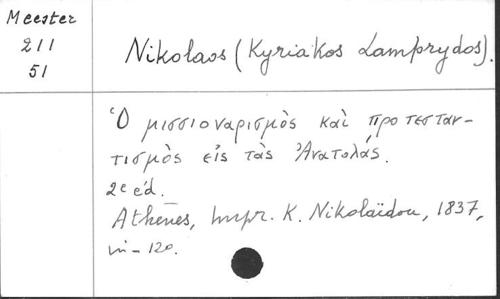 Meester
211
51
Nikolaos (Kyriakos Lamprydos).
Ὁ μισσιοναρισμὸς καὶ προτεσταν-
τισμὸς εἰς τὰς Ἀνατολάς.
2e éd.
Athènes, Impr. K. Nikolaïdou, 1837,
in-120.